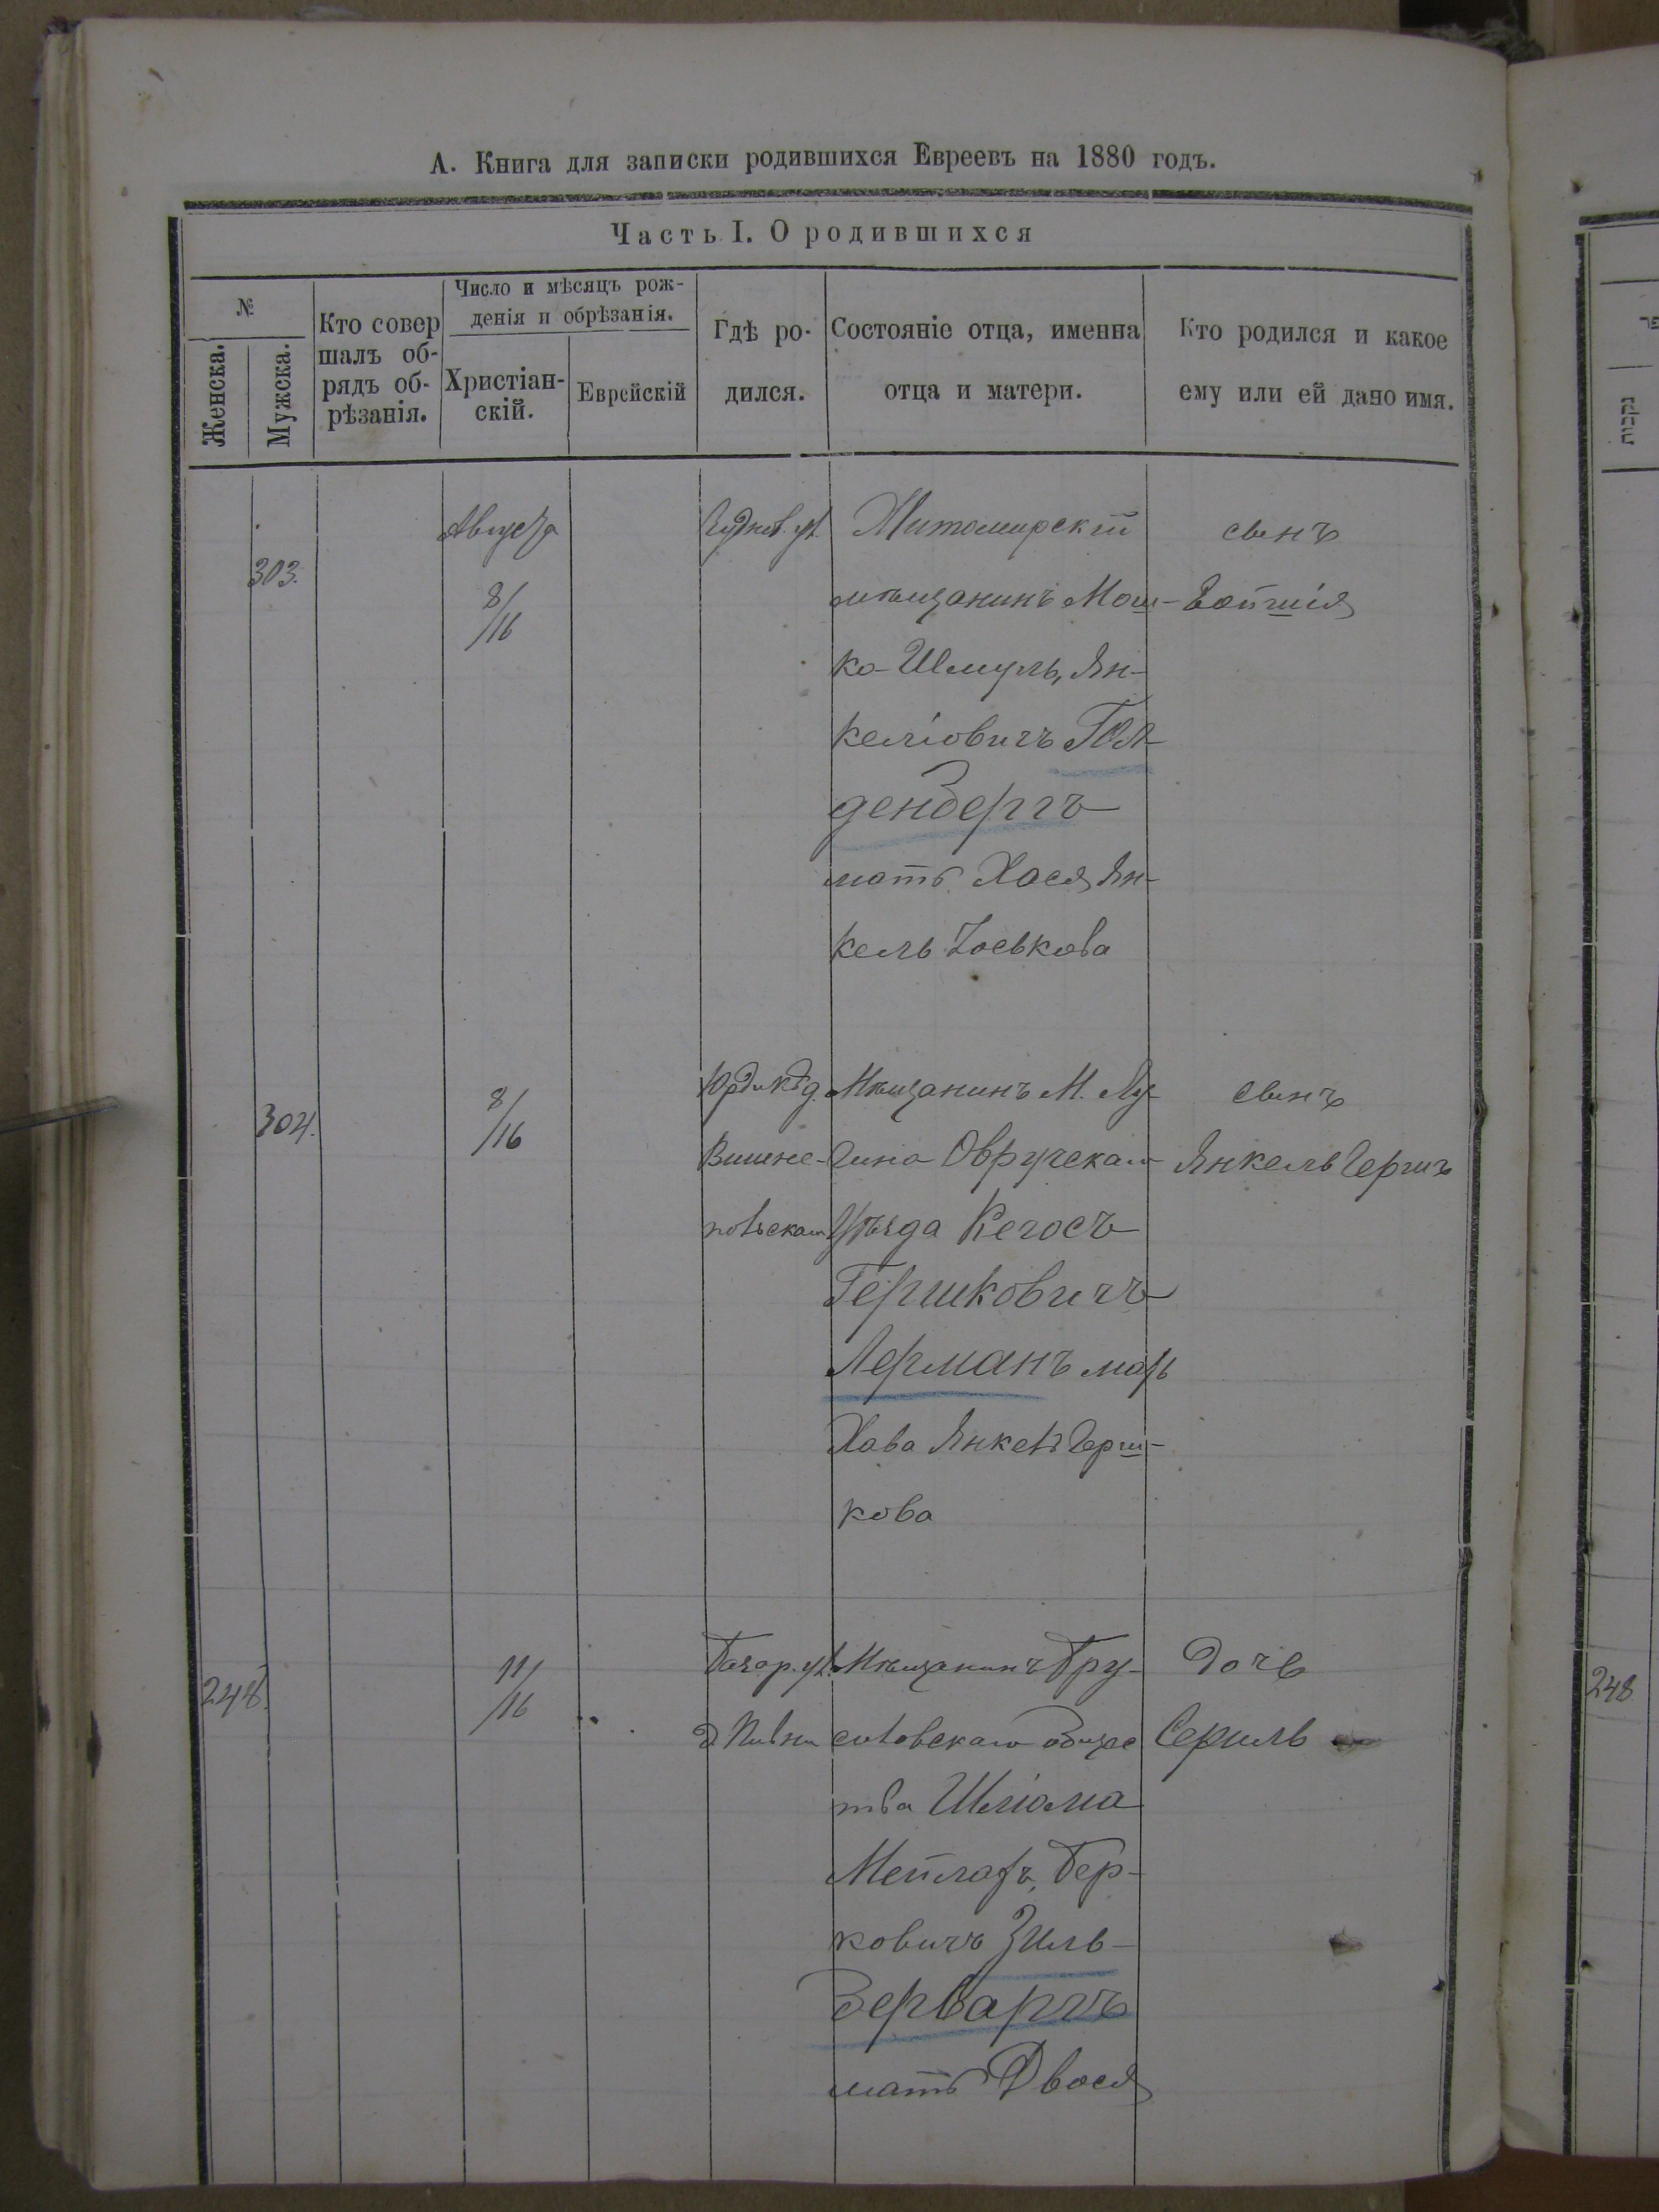 А. Книга для записки родившихся Евреевъ на 1880 годъ.
Часть I. О родившихся
№
Женска.
Мужска.
Кто совер
шалъ об-
рядъ об-
рѣзанія.
Число и мѣсяцъ рож-
денія и обрѣзанія.
Христіан-
скій.
Еврейскій
Гдѣ ро-
дился.
Состояніе отца, именна
отца и матери.
Кто родился и какое
ему или ей дано имя.
303.
Августа
8/
/16
Чуднов. ул.
Житомирскій
мѣщанинъ Мош-
ко-Шмуль, Ян-
келіовичъ Гол-
денбергъ
мать Хася Ян-
кель Іоськова
сынъ
304.
8/
/16
Юрдикѣ д.
Вишне-
повскаго
Мѣщанинъ М. Лу-
гина Овручскаго
Уѣзда Кегосъ
Гершковичъ
Лерманъ мать
Хава Янкель Герш-
кова
сынъ
Янкель Гершъ
248.
11/
/16
Базар. ул.
Мѣщанинъ Тру-
совскаго общес
тва Шліома
Мейлахъ, Бер-
ковичъ Зиль-
берваргъ
мать Двося
дочь
Сериль
248
נקבות